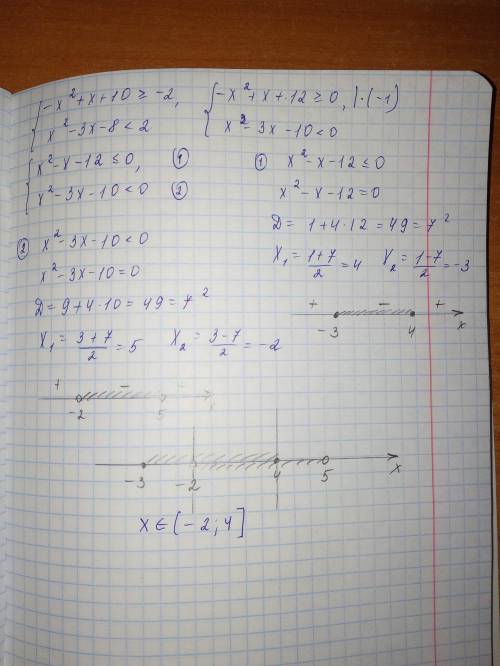 { -x² + x + 10 ≥ -2,
x² - 3x - 8 < 2
{ -x² + x + 12 ≥ 0, | · (-1)
x² - 3x - 10 < 0
{ x² - x - 12 ≤ 0, ①
x² - 3x - 10 < 0 ②
① x² - x - 12 ≤ 0
x² - x - 12 = 0
D = 1 + 4 · 12 = 49 = 7²
x₁ = (1+7)/2 = 4 x₂ = (1-7)/2 = -3
+ - +
-3 4 x
② x² - 3x - 10 < 0
x² - 3x - 10 = 0
D = 9 + 4 · 10 = 49 = 7²
x₁ = (3+7)/2 = 5 x₂ = (3-7)/2 = -2
+ - +
-2 5 x
-3 -2 4 5 x
x ∈ [-2; 4]